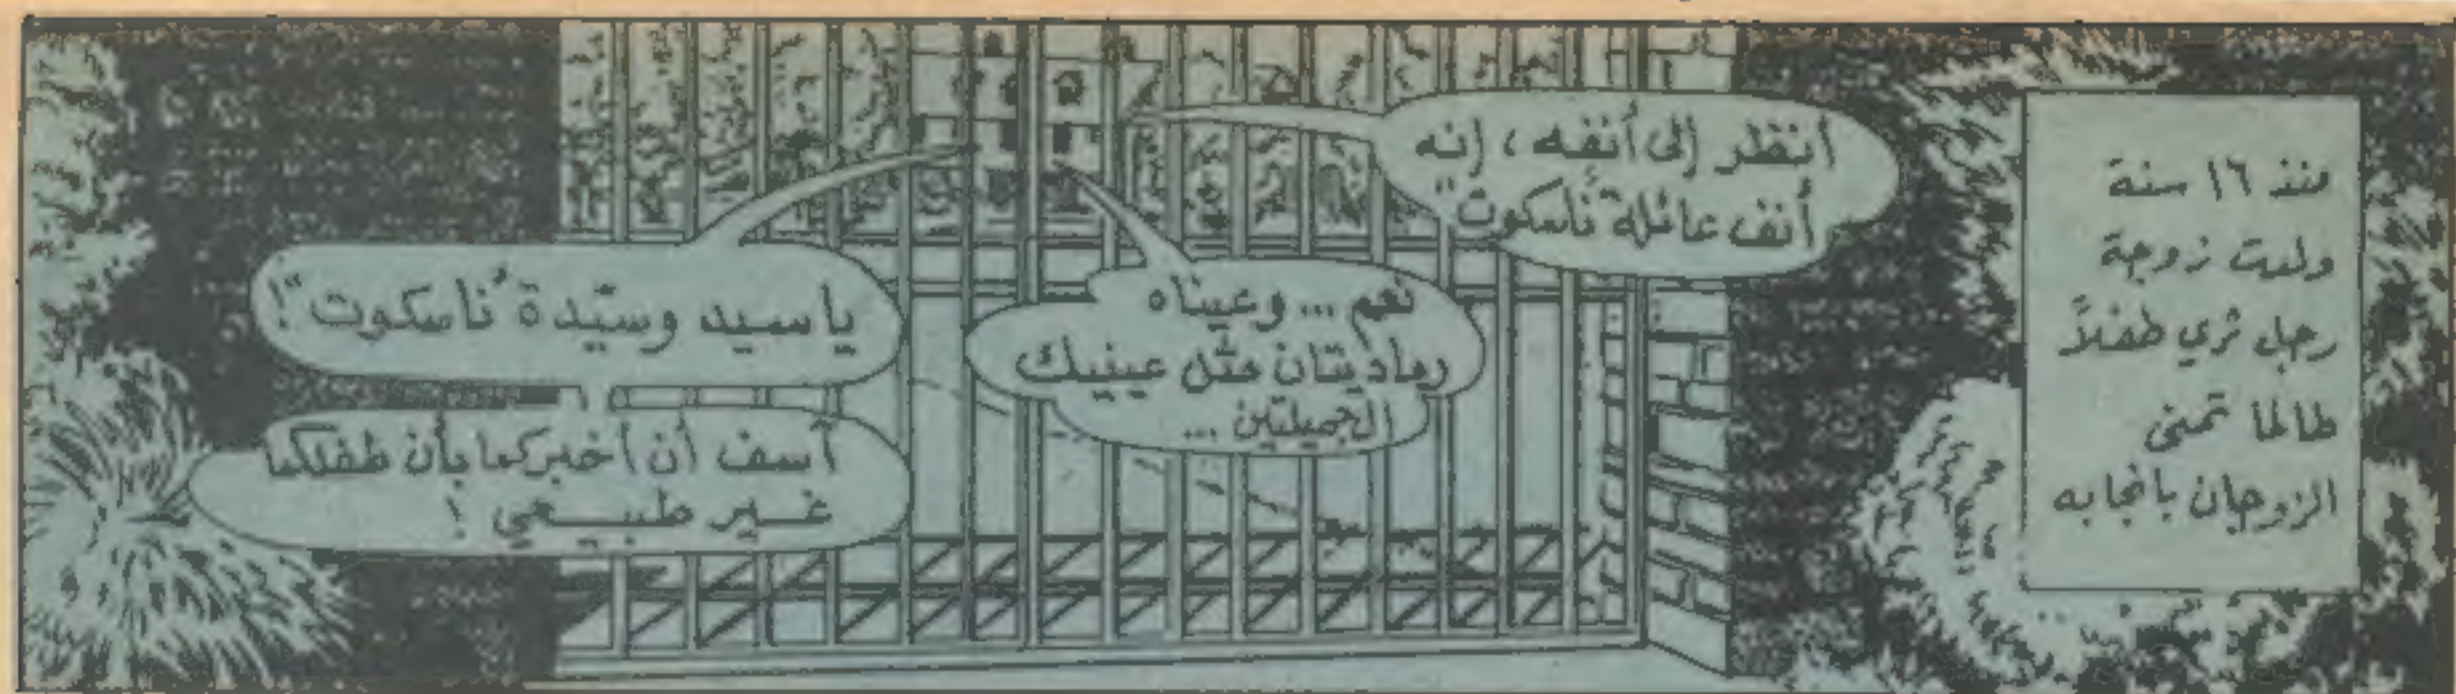 منذ ١٦ سنة
ولدت زوجة
رجل ثري طفلاً
طالما تمنى
الزوجان بانجابه
أنظر إلى أنفه ، إنه
أنف عائلة "ناسكوت"
نعم ... وعيناه
رماديتان مثل عينيك
الجميلتين ...
يا سيد وسيّدة "ناسكوت"!
آسف أن أخبركما بأن طفلكما
غير طبيعي !